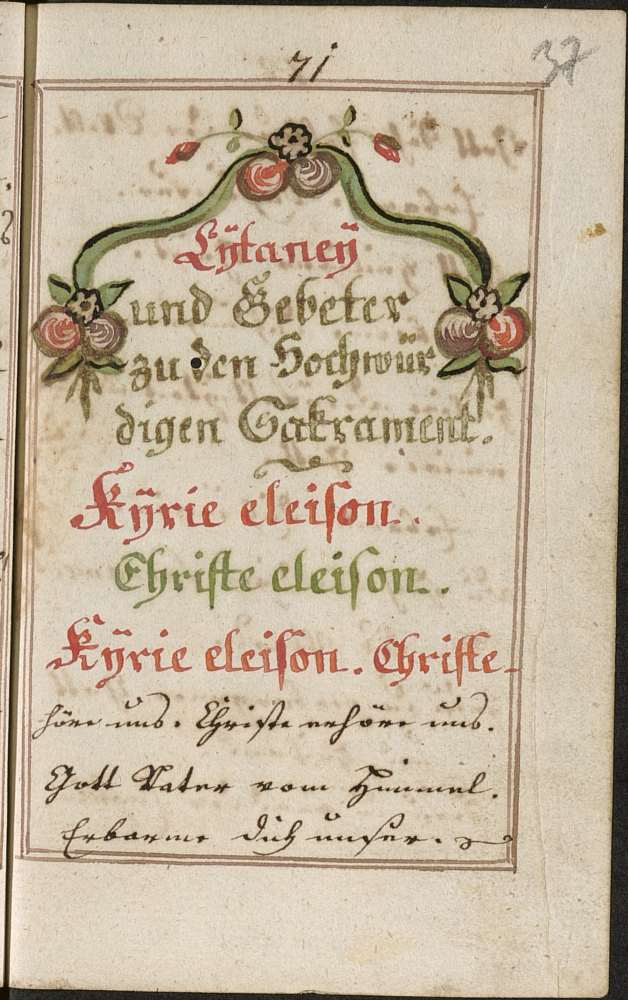 71
37
Lÿtaneÿ
und Gebeter
zu den Hochwür
digen Sakrament.
Kÿrie eleison.
Christe eleison.
Kÿrie eleison. Christe
höre uns. Christe erhöre uns.
Gott Vater vom Himmel.
Erbarme dich unser.